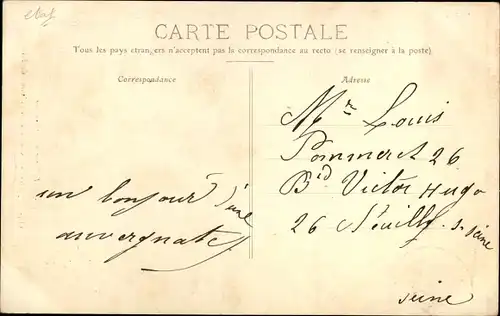 CARTE POSTALE
Tous les pays etrangers n'acceptent pas la correspondance au recto (se renseigner à la poste)
Correspondance
Adresse
un bonjour d'une
auvergnate
Mr Louis
Pommeret 26
Bid Victor Hugo
26 Neuilly s. seine
seine